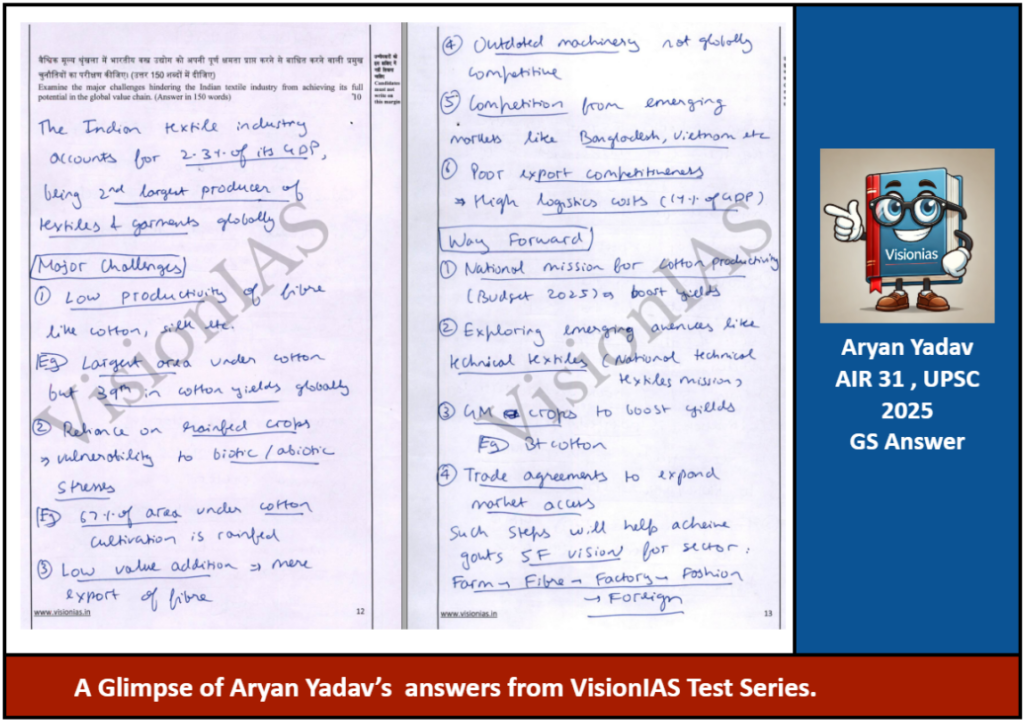 वैश्विक मूल्य श्रृंखला में भारतीय वस्त्र उद्योग को अपनी पूर्ण क्षमता प्राप्त करने से बाधित करने वाली प्रमुख
चुनौतियों का परीक्षण कीजिए। (उत्तर 150 शब्दों में दीजिए)
Examine the major challenges hindering the Indian textile industry from achieving its full
potential in the global value chain. (Answer in 150 words) 10
Candidates
must not
write on
this margin
The Indian textile industry
accounts for 2.3% of its GDP,
being 2nd largest producer of
textiles & garments globally
Major Challenges
① Low productivity of fibre
like cotton, silk etc.
Eg Largest area under cotton
but 39th in cotton yields globally
② Reliance on rainfed crops
→ vulnerability to biotic/abiotic
stresses
Eg 67% of area under cotton
cultivation is rainfed
③ Low value addition → mere
export of fibre
www.visionias.in
12
④ Outdated machinery not globally
competitive
⑤ Competition from emerging
markets like Bangladesh, Vietnam etc
⑥ Poor export competitiveness
→ High logistics costs (14% of GDP)
Way Forward
① National mission for cotton productivity
(Budget 2025) → boost yields
② Exploring emerging avenues like
technical textiles (National technical
textiles mission)
③ GM crops to boost yields
Eg Bt cotton
④ Trade agreements to expand
market access
Such steps will help acheive
govts 5F vision for sector:
Farm → Fibre → Factory → Fashion
→ Foreign
www.visionias.in
13
VisionIAS
VisionIAS
Visionias
Aryan Yadav
AIR 31 , UPSC
2025
GS Answer
A Glimpse of Aryan Yadav's answers from VisionIAS Test Series.